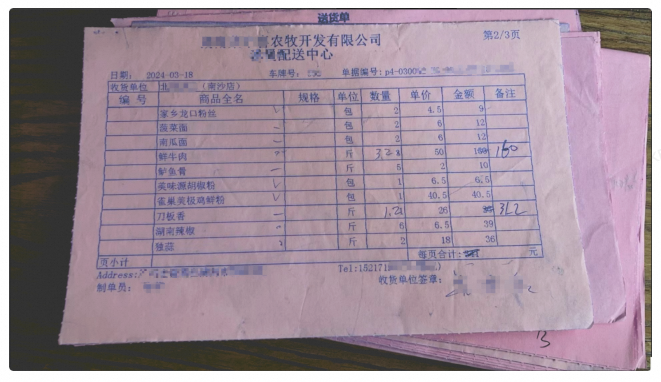 送货单
农牧开发有限公司
第2/3页
配送中心
日期: 2024-03-18 车牌号: 单据编号: p4-0300
收货单位 北 (南沙店)
编 号 商品全名 规格 单位 数量 单价 金额 备注
家乡龙口粉丝 包 2 4.5 9
菠菜面 包 2 6 12
南瓜面 包 2 6 12
鲜牛肉 斤 3.2 50 160
鲈鱼骨 斤 5 2 10
美味源胡椒粉 包 1 6.5 6.5
雀巢美极鸡鲜粉 包 1 40.5 40.5
刀板香 斤 1.2 26 31.2
湖南辣椒 斤 6 6.5 39
独蒜 斤 2 18 36
页小计 每页合计: 元
Address: Tel:15217
制单员: 收货单位签章: